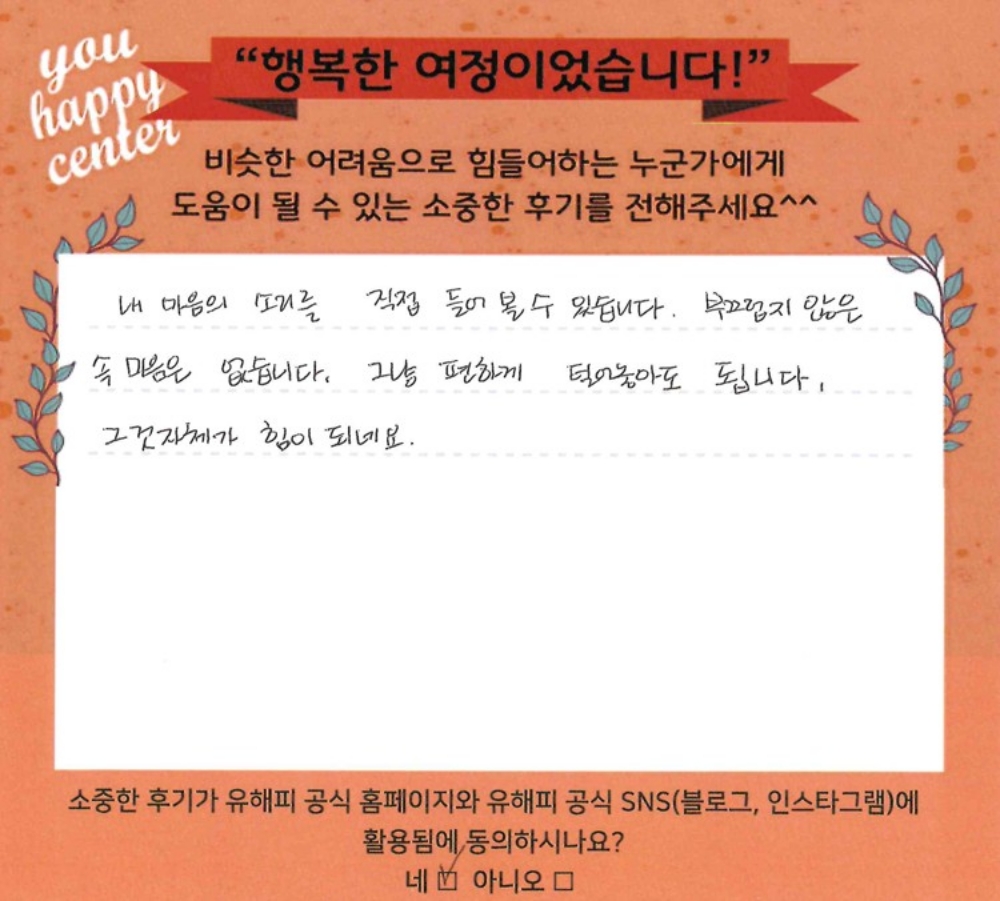 you
happy
center
“행복한 여정이었습니다!”
비슷한 어려움으로 힘들어하는 누군가에게
도움이 될 수 있는 소중한 후기를 전해주세요^^
내 마음의 소리를 직접 들어 볼 수 있습니다. 부끄럽지 않은
속 마음은 없습니다. 그냥 편하게 털어놓아도 됩니다.
그것자체가 힘이 되네요.
소중한 후기가 유해피 공식 홈페이지와 유해피 공식 SNS(블로그, 인스타그램)에
활용됨에 동의하시나요?
네 ☑ 아니오 □